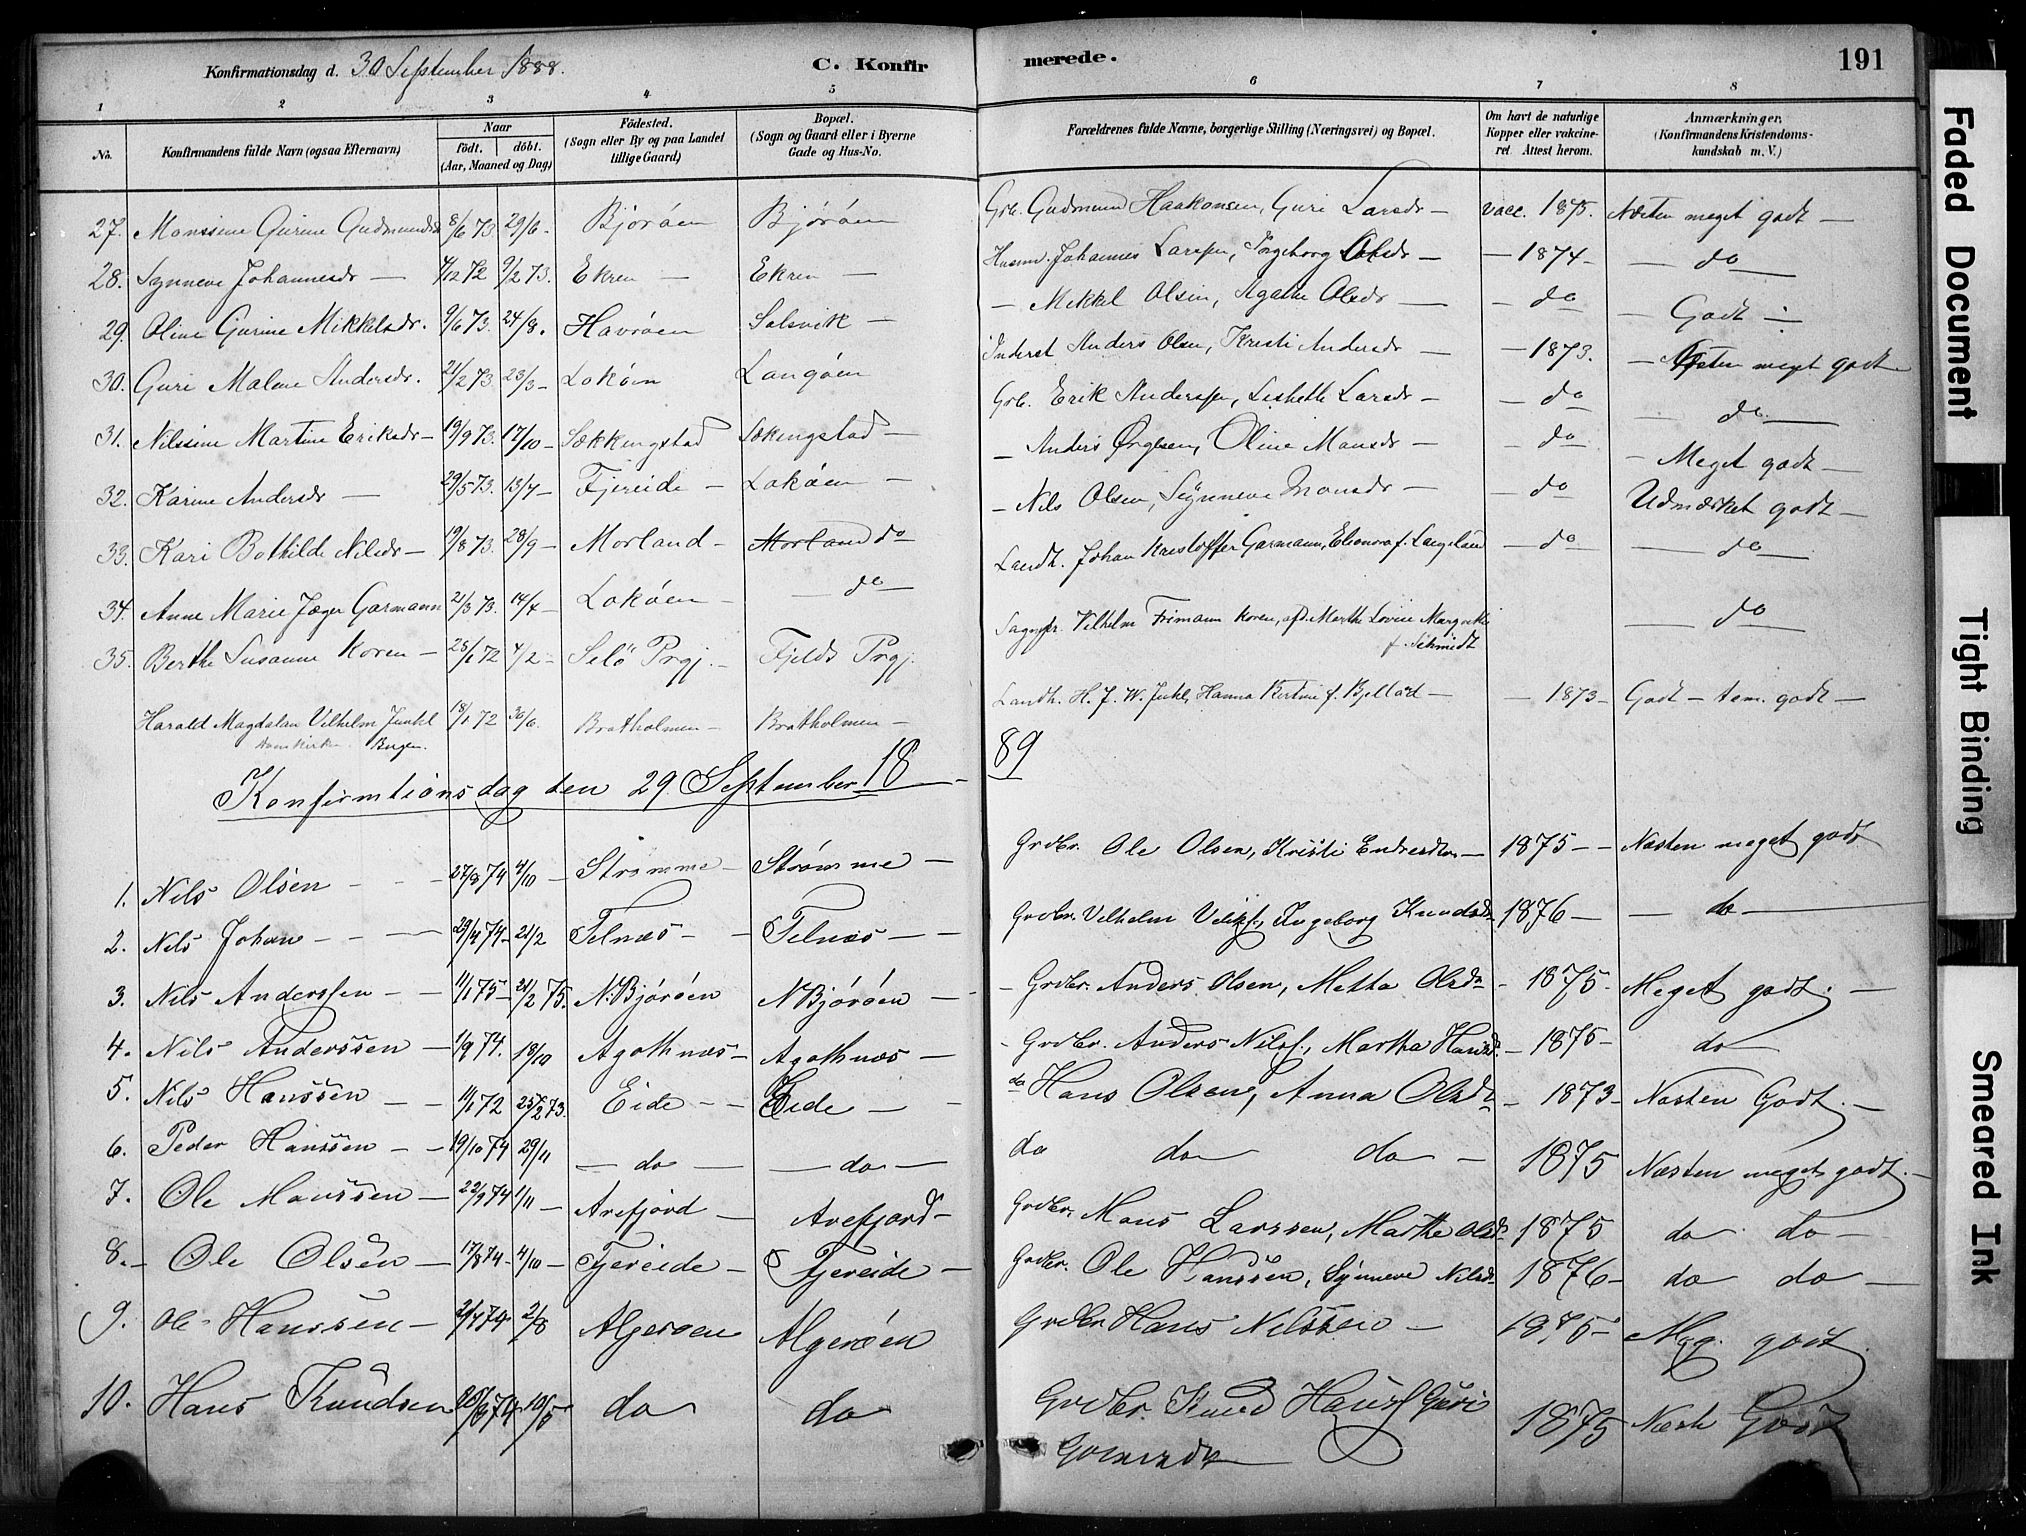 Konfirmationsdag d. 30 September 1888. C. Konfirmerede. 191
1 2 3 4 5 6 7 8
No. Konfirmandens fulde Navn (ogsaa Efternavn) Naar födt. döbt. (Aar, Maaned og Dag) Födested. (Sogn eller By og paa Landet tillige Gaard) Bopæl. (Sogn og Gaard eller i Byerne Gade og Hus-No. Forældrenes fulde Navne, borgerlige Stilling (Næringsvei) og Bopæl. Om havt de naturlige Kopper eller vaccineret Attest herom. Anmærkninger. (Konfirmandens Kristendomskundskab m. V.)
27. Monssine Gurine Gudmundsd 8/6 73 29/6 - Bjøröen Bjøröen Grb. Gudmund Haakonsen, Guri Larsdr - vacc. 1875. Næsten meget godt -
28. Synneve Johannesdr - 4/12 72 9/2 73. Ekren - Ekren - Husmd. Johannes Larssen, Ingeborg Olsdr - - 1874 - - do -
29. Oline Gurine Mikkelsdr. 9/6 73. 24/8. Havröen Solsvik - - Mikkel Olsen, Agathe Olsdr - - do - Godt -
30. Guri Malene Andersdr. 21/2 73 23/3 - Loköen Langöen Inderst Anders Olsen, Kristi Andersdr - - 1873. - Næsten meget godt -
31. Nilsine Martine Eriksdr - 19/9 73. 17/10 - Sækkingstad Sækingstad - Grb. Erik Anderssen, Lisbeth Larsdr - - do - do -
32. Karine Andersdr - 29/5 73. 13/7 - Fjereide - Loköen - - Anders Ørgesen, Oline Monsdr - - do - Meget godt -
33. Kari Bothilde Nilsdr - 19/8 73. 28/9 - Morland - Morland do - Nils Olsen, Synneve Monsdr - - do Udmærket godt -
34. Anne Marie Jæger Garmann 2/3 73. 14/4 - Loköen - - do - Landh. Johan Kristoffer Garmann, Eleonora f. Langeland - do - do -
35. Berthe Susanne Koren - 28/1 72 4/2 - Selö Prgj. - Fjelds Prgj. Sagfør. Vilhelm Frimann Koren, og Marthe Lovise Margrethe f. Schmidt - do -
Harald Magdalon Vilhelm Juuhl 18/1 72 30/6 Bratholmen - Bratholmen - Landh. H. J. W. Juhl, Hanna Kirstine f. Bjeltöd - - 1873 - Godt - tem. godt -
Domkirken Bergen.
Konfirmtionsdag den 29 September 1889
1. Nils Olsen - - - 27/8 74 4/10 - Strømme - Strømme - Grdbr. Ole Olsen, Kristi Endresdtr - 1875 - - Næsten meget godt
2. Nils Johan - - - 29/4 74 - 21/2 Telnæs - - Telnæs - - Grdbr. Vilhelm Velkjs., Ingeborg Knudsd 1876 - - do -
3. Nils Anderssen - - 11/1 75 - 21/2 75. N. Björöen N Björöen - - Grdbr. Anders Olsen, Metta Olsdr - 1875. Meget godt. -
4. Nils Anderssen - 1/9 74. 18/10 Agothnæs - Agothnæs - - Grdbr. Anders Nilss., Martha Hansd. - 1875 - do -
5. Nils Hanssen - - 11/1 72 25/2 73. Eide - - Eide - - do Hans Olsen, Anna Olsdr - 1873 - Næsten Godt. -
6. Peder Hanssen - - 19/10 74 29/11 - do - - do - do do do - 1875 Næsten meget godt. -
7. Ole Monssen - 22/9 74 1/11 - Arefjord - Arefjord - Grdbr. Mons Larssen, Marthe Olsd. 1875 do do -
8. - Ole Olsen - 17/8 74 - 4/10 - Fjereide - Fjereide - Grdbr. Ole Hanssen, Synneve Nilsd. 1876 - do do -
9. Ole Hanssen - 2/7 74 2/8 Algeröen Algeröen Grdbr Hans Nilssen - 1875 - Mg. godt.
10. Hans Knudsen 74 do do Grdbr. Knud Hanss Guri 1875 Næst. Godt
Faded Document
Tight Binding
Smeared Ink